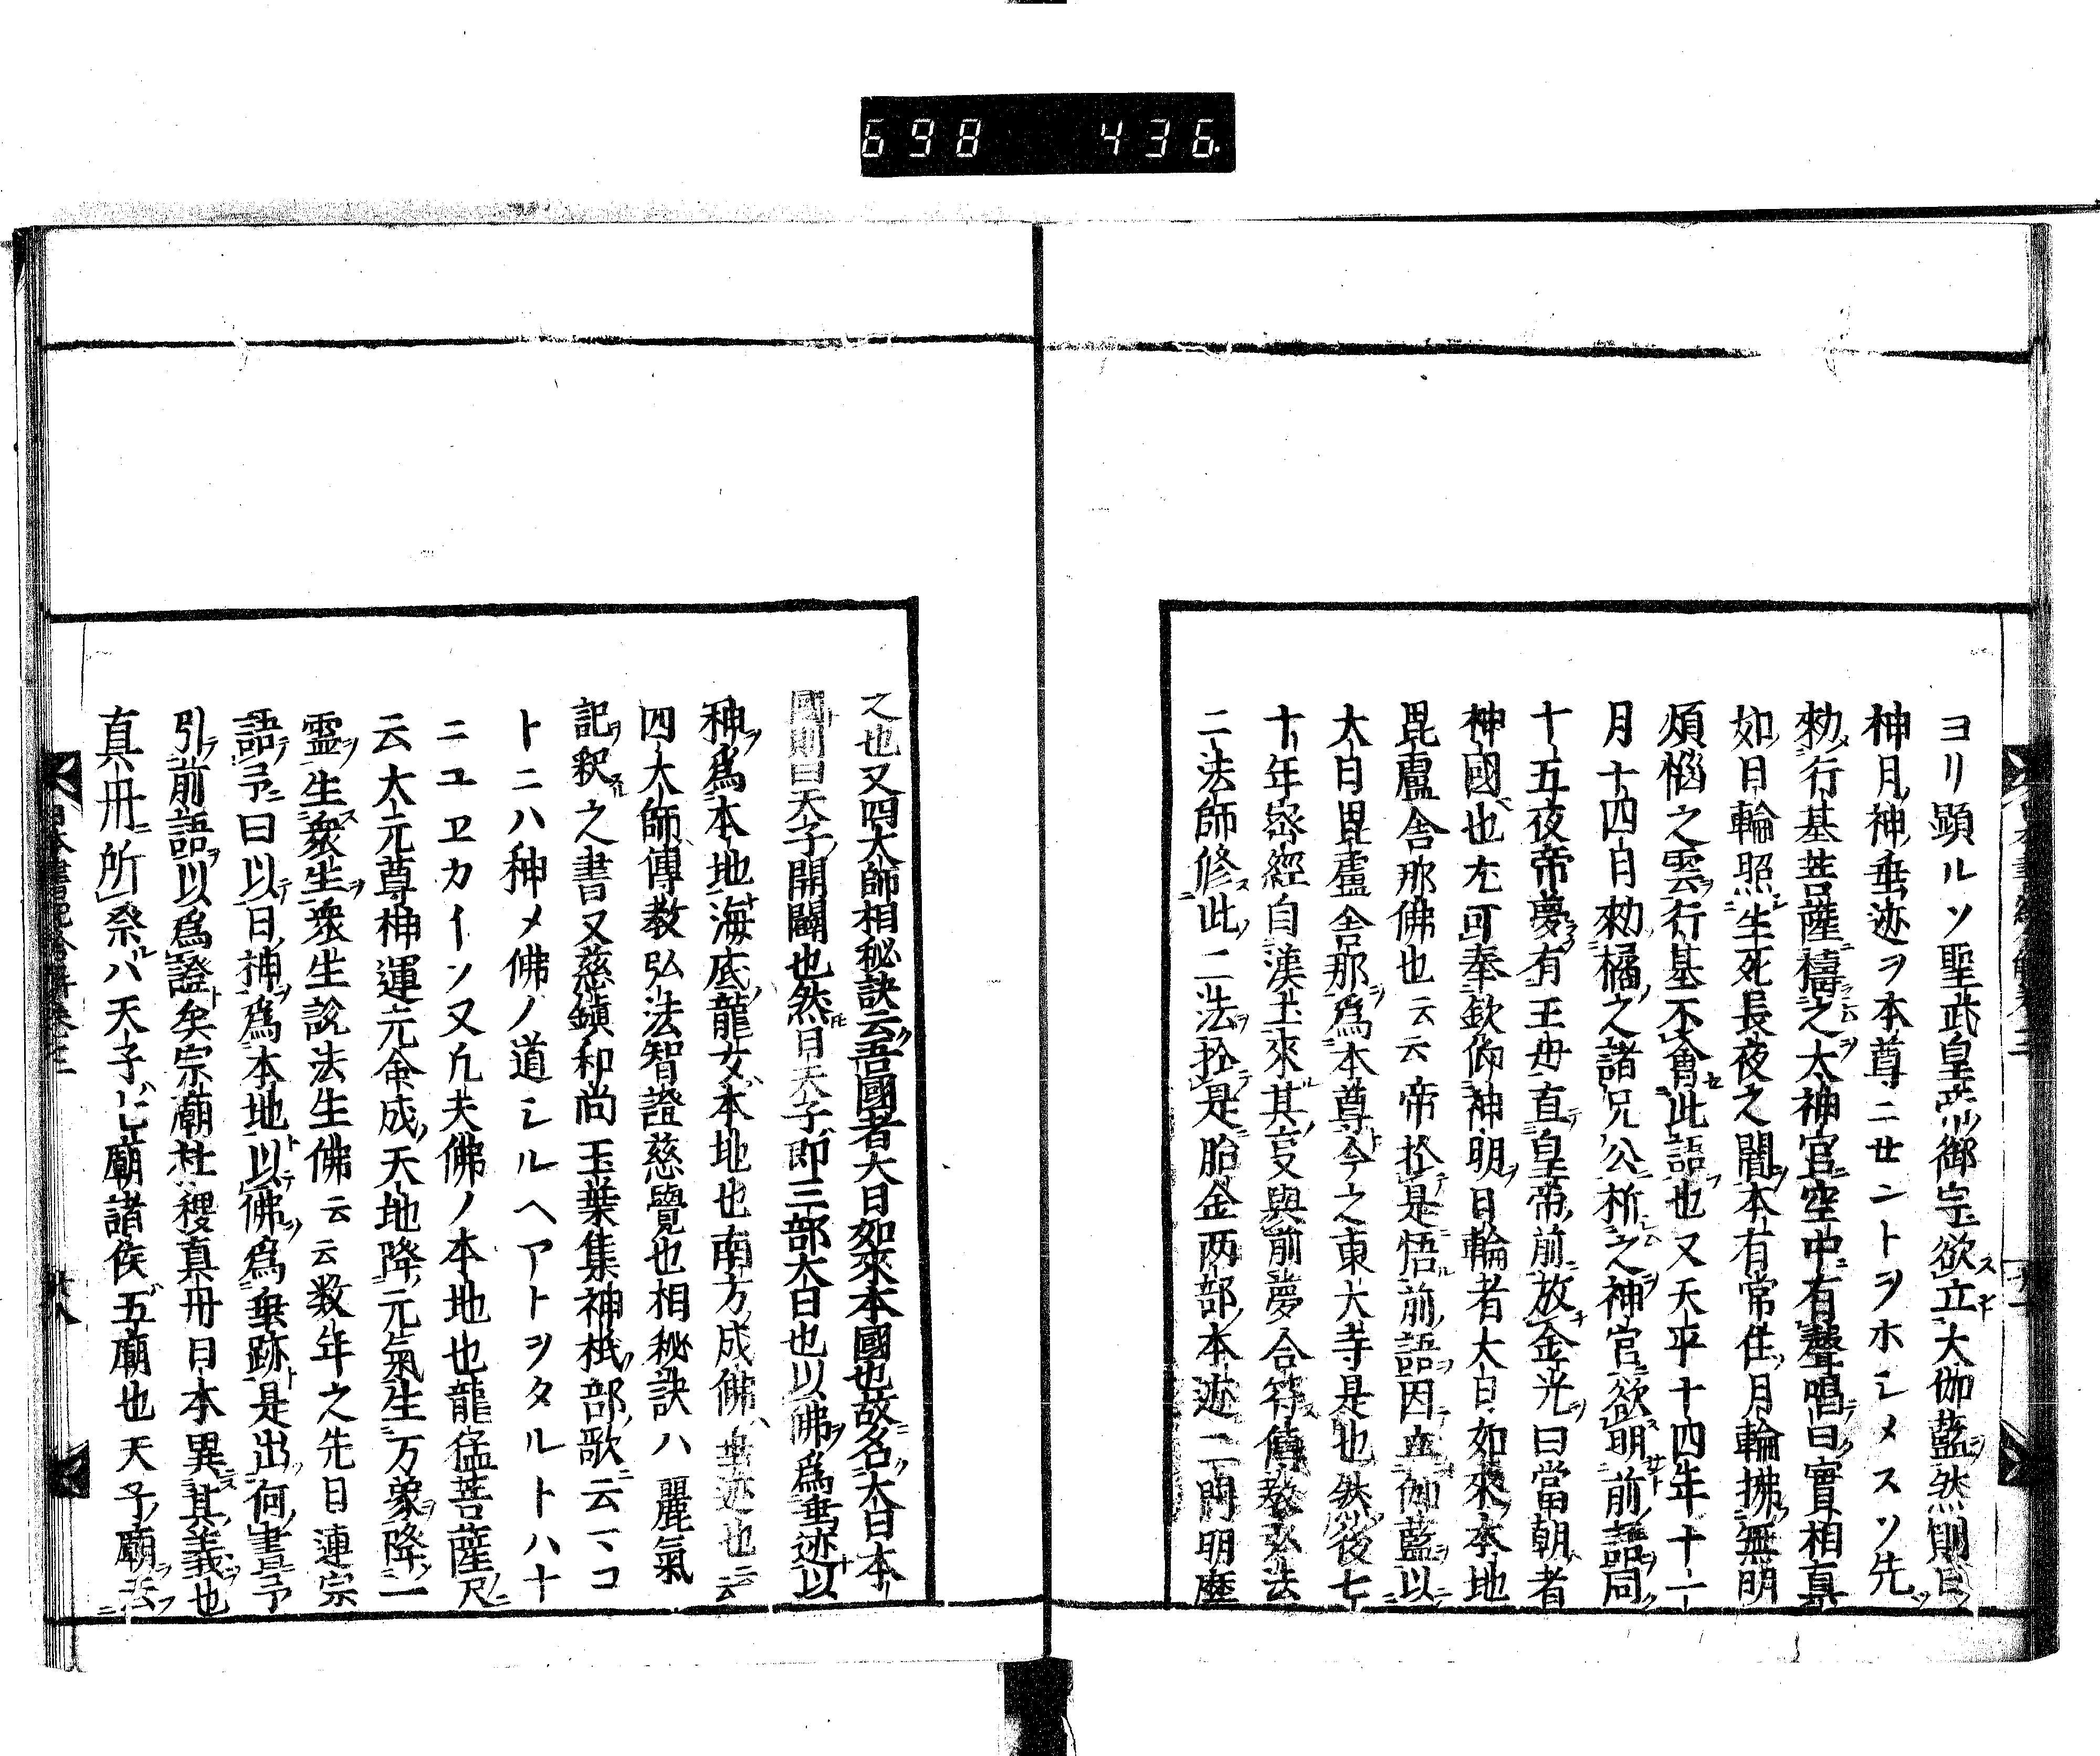 698 436
ヨリ顕ルソ聖武皇帝御宇欲立大伽藍然則日
神月神垂迹ヲ本尊ニセントヲホシメスソ先
勅行基菩薩禱之大神宮空中有聲唱曰實相真
如日輪照生死長夜之闇本有常住月輪拂無明
煩惱之雲行基不會此語也又天平十四年十一
月十四日勅橘之諸兄公祈之神宮欲明前語同
十五夜帝夢有王母直皇帝前放金光曰當朝者
神國也尤可奉欽仰神明日輪者大日如來本地
毘盧舎那佛也云云帝於是悟前語因立伽藍以
大日毘盧舎那為本尊今之東大寺是也然後七
十年密經自漢土來其㫖與前夢合符傳教弘法
二法師修此二法於是胎金两部本迹二門明歴
之也又四大師相秘訣云吾國者大日如來本國也故名大日本
國則曰天子開闢也然日天子即三部大日也以佛為垂迹以
神為本地海底龍女本地也南方成佛垂迹也云云
四大師傳教弘法智證慈覺也相秘訣ハ麗氣
記釈之書又慈鎮和尚玉葉集神祇部歌云マコ
トニハ神メ佛ノ道シルヘアトヲタルトハ十
ニユヱカイソ又凢夫佛ノ本地也龍猛菩薩尺
云大元尊神運元命成天地降元氣生万象降一
霊生衆生衆生說法生佛云云数年之先日連宗
語予曰以日神為本地以佛為垂跡是出何書予
引前語以為證矣宗廟社稷真丹日本異其義也
真丹所祭ハ天子ハ七廟諸侯五廟也天子廟云